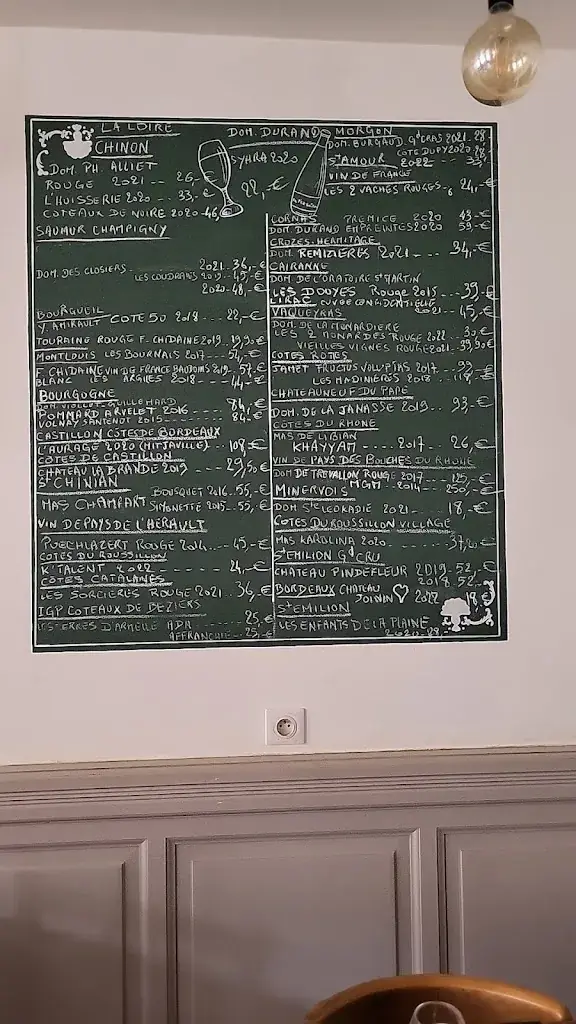 LA LOIRE
CHINON
DOM. PH. ALLIET
ROUGE 2021 -- 26,-€
L'HUISSERIE 2020 --- 33,-€
COTEAUX DE NOIRE 2020-46€
SAUMUR CHAMPIGNY
DOM. DES CLOSIERS ---- 2021 - 36,-€
LES COUDRAIS 2019 -- 45,-€
2020 - 48,-€
BOURGUEIL
Y. AMIRAULT COTE 50 2018 - 22,-€
TOURAINE ROUGE F. CHIDAINE 2019 -- 19,90€
MONTLOUIS LES BOURNAIS 2017 -- 54,-€
F CHIDAINE VIN DE FRANCE BAUDOINS 2019 - 57.€
BLANC LES ARGILES 2018 -- 44-€
BOURGOGNE
84,-€
POMMARD ARVELET 2016
VOLNAY SANTENOT 2015 ---- 84-€
CASTILLON CÔTES DE BORDEAUX
L'AURAGE 2020 (MITJAVILLE) -- 108,€
CÔTES DE CASTILLON
CHATEAU LA BRANDE 2019 --- 29,50€
ST CHINIAN
BOUSQUET 2016 - 55,-€
MAS CHAMPART SIMONETTE 2015 -- 55,€
VIN DE PAYS DE L'HERAULT
PUECHLAZERT ROUGE 2014 --- 45,-€
CÔTES DU ROUSSILLON
K'TALENT 2022 ---- 24,-€
CÔTES CATALANES
LES SORCIÈRES ROUGE 2021 - 36,€
IGP COTEAUX DE BEZIERS
25,€
AFFRANCHIE - 25,-€
DOM. DURAND
SYHRA 2020
22,-€
MORGON
DOM. BURGAUD. GD CRAS 2021 - 28
COTE DU PY 2020
ST AMOUR 2022 --- 33,
VIN DE FRANCE
LES 2 VACHES ROUGES - 6 24,-€
CORNAS PREMICE 2020 43-€
DOM. DURAND EMPREINTES 2020 59-€
CROZES-HERMITAGE
DOM. REMIZIERES 2021 --- 34,-€
CAIRANNE
DOM. DE L'ORATOIRE ST MARTIN
LES DOUYES ROUGE 2015 --- 39,-€
LIRAC CUVÉE CONFIDENTIELLE
2021 - 45,-€
VAQUEYRAS
DOM. DE LA MONARDIERE
LES 2 MONARDES ROUGE 2022 - 30€
VIEILLES VIGNES ROUGE 2021 - 39,90€
COTES ROTIES
JAMET FRUCTUS VOLUPTAS 2017 -- 99-€
LES MADINIÈRES 2018 - 118,€
CHATEAUNEUF DU PAPE
DOM. DE LA JANASSE 2019 -- 93,-€
CÔTES DU RHONE
MAS DE LIBIAN
KHAYYAM ---- 2017 - 26,€
VIN DE PAYS DES BOUCHES DU RHONE
DOM DE TREVALLON ROUGE 2017 -- 125,-€
MGM - 2014 - 250,-€
MINERVOIS
DOM STE LEOKADIE 2021 - 18,-€
COTES DU ROUSSILLON VILLAGE
MAS KAROLINA 2020 ---- 37,20€
ST EMILION GD CRU
CHÂTEAU PINDEFLEUR 2019 - 52,-€
2018 52,-€
BORDEAUX CHATEAU
JOININ 2022 18€
ST EMILION
LES ENFANTS DE LA PLAINE
2020